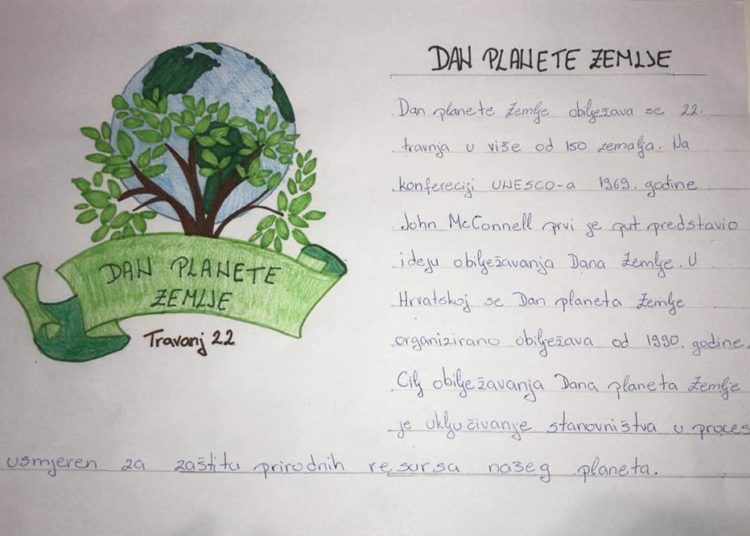 DAN PLANETE
ZEMLJE
Travanj 22
DAN PLANETE ZEMLJE
Dan planete Zemlje obilježava se 22.
travnja u više od 150 zemalja. Na
konfereciji UNESCO-a 1969. godine
John McConnell prvi je put predstavio
ideju obilježavanja Dana Zemlje. U
Hrvatskoj se Dan planeta Zemlje
organizirano obilježava od 1990. godine.
Cilj obilježavanja Dana planeta Zemlje
je uključivanje stanovništva u proces
usmjeren za zaštitu prirodnih resursa našeg planeta.